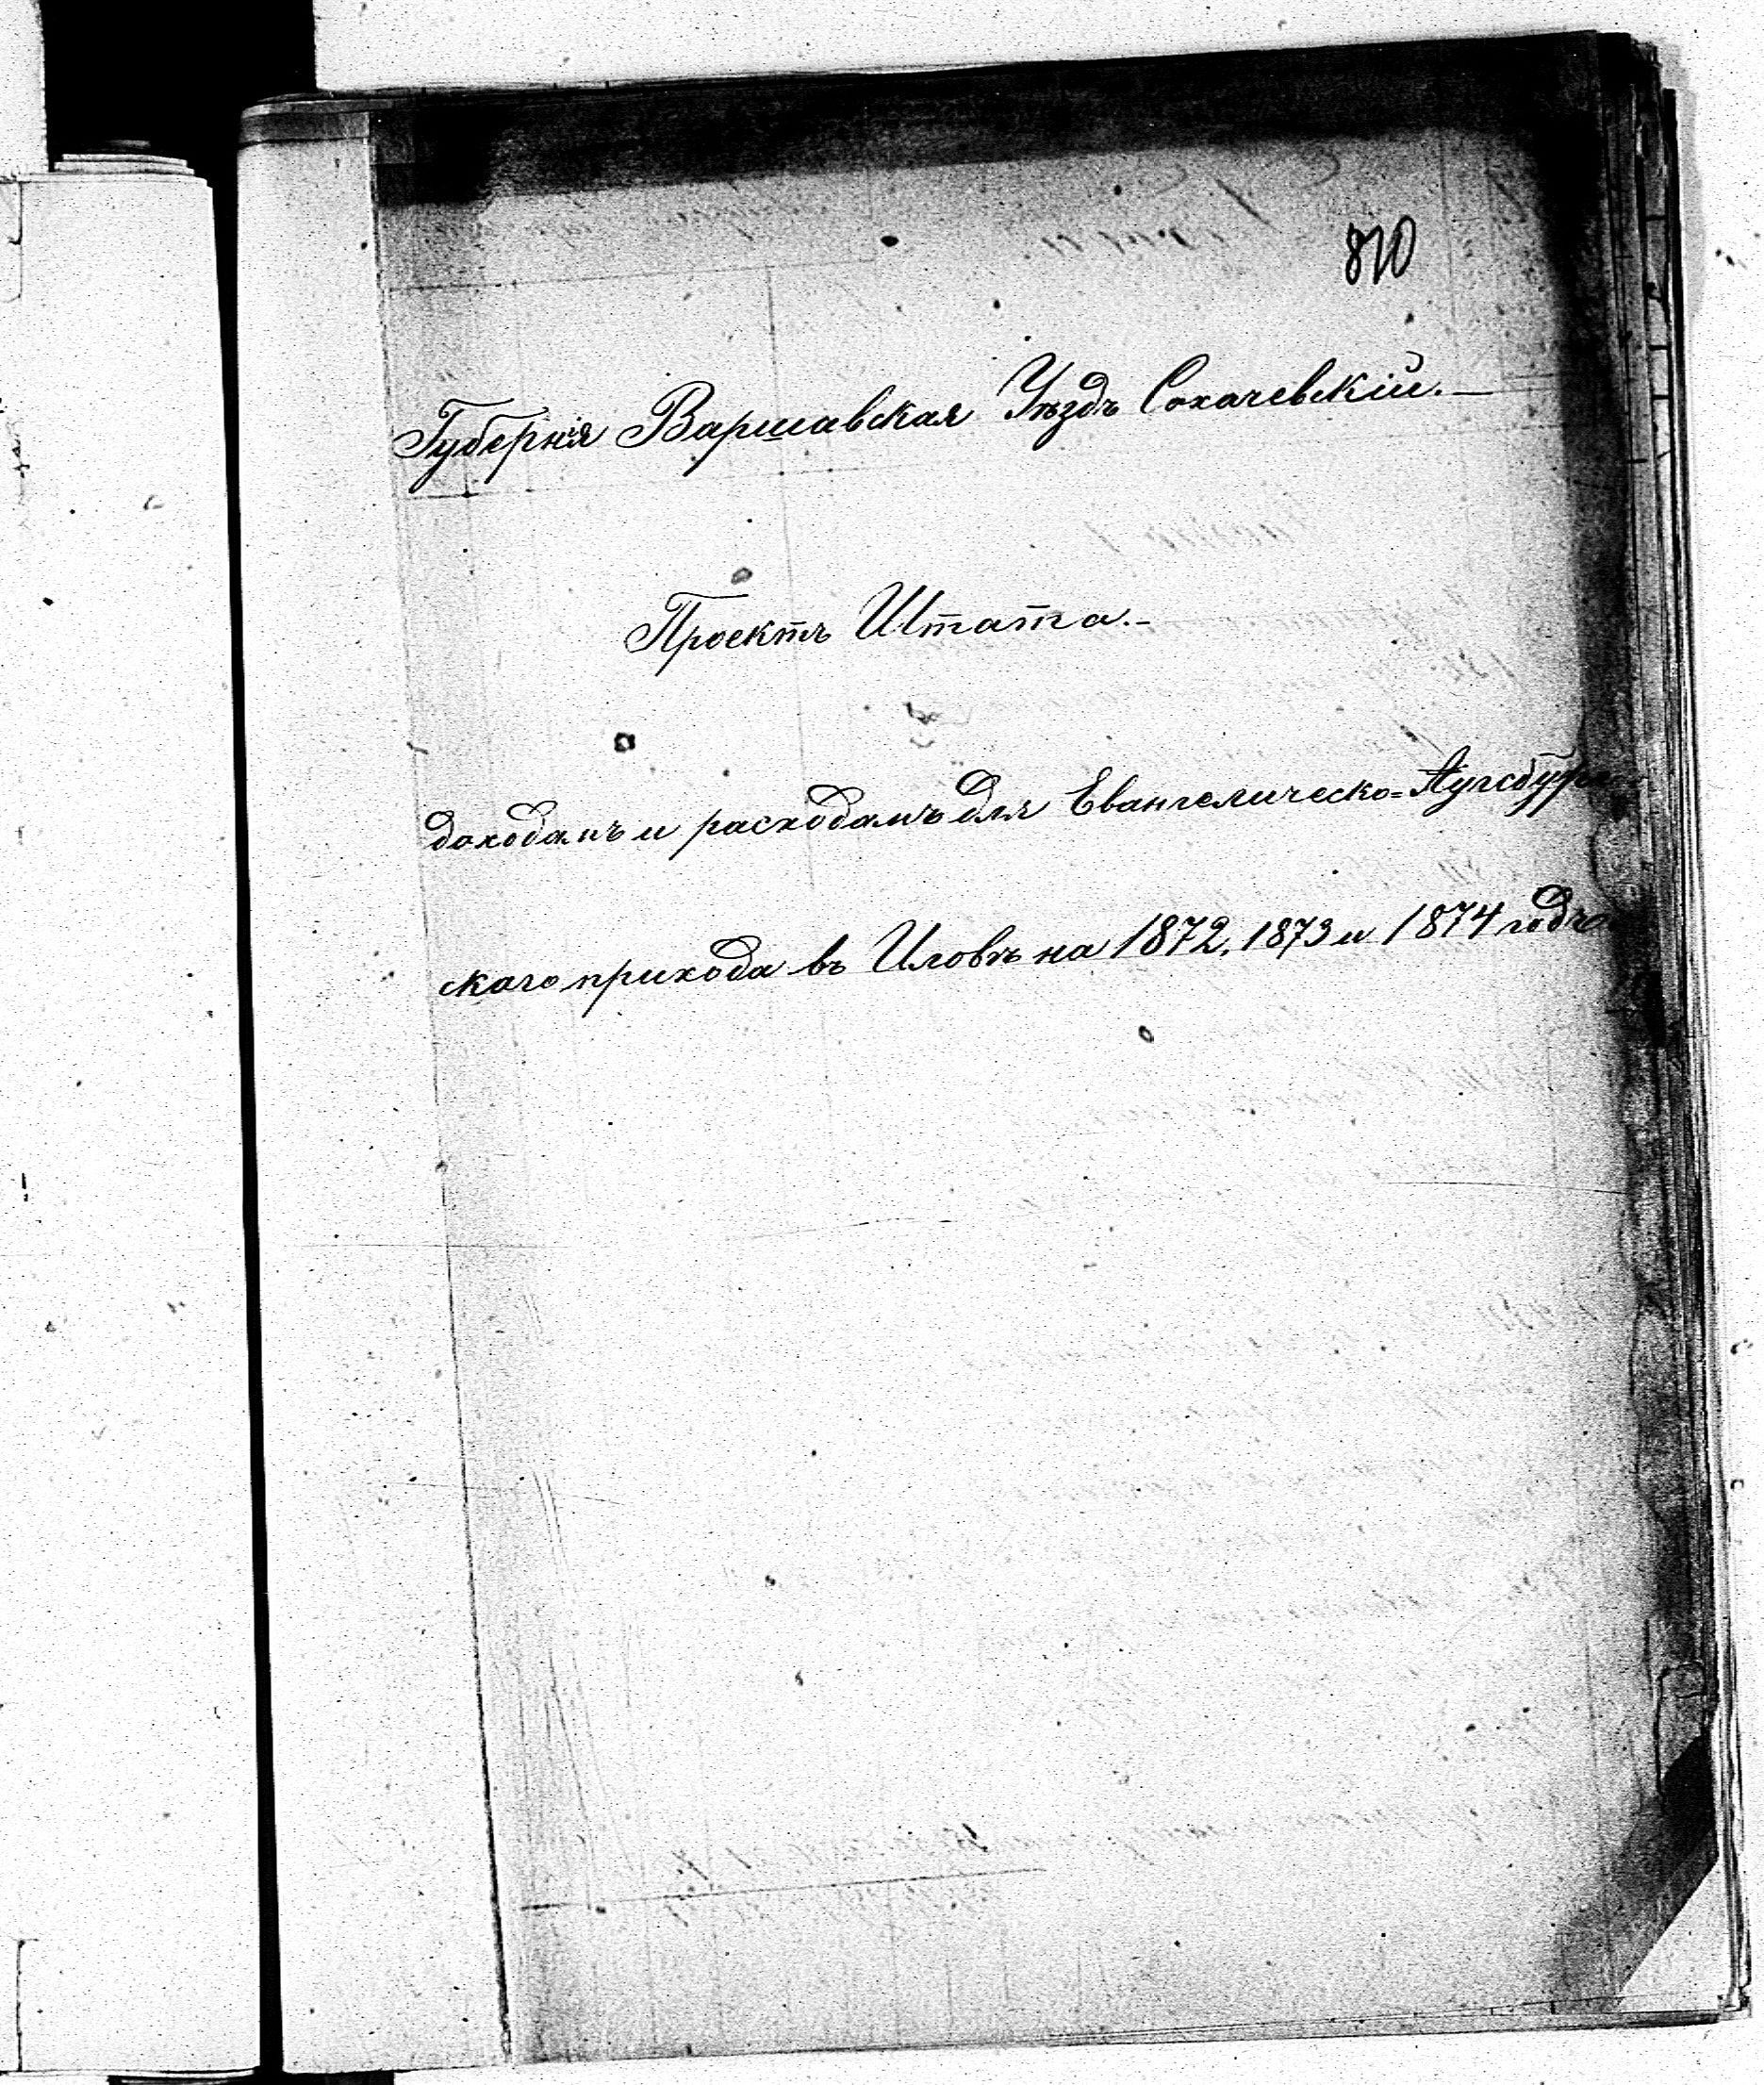 810
Губернія Варшавская Уѣздъ Сохачевскій.—
Проектъ Штата.—
доходамъ и расходамъ для Евангелическо=Аугсбург
скаго прихода въ Иловѣ на 1872, 1873 и 1874 годъ